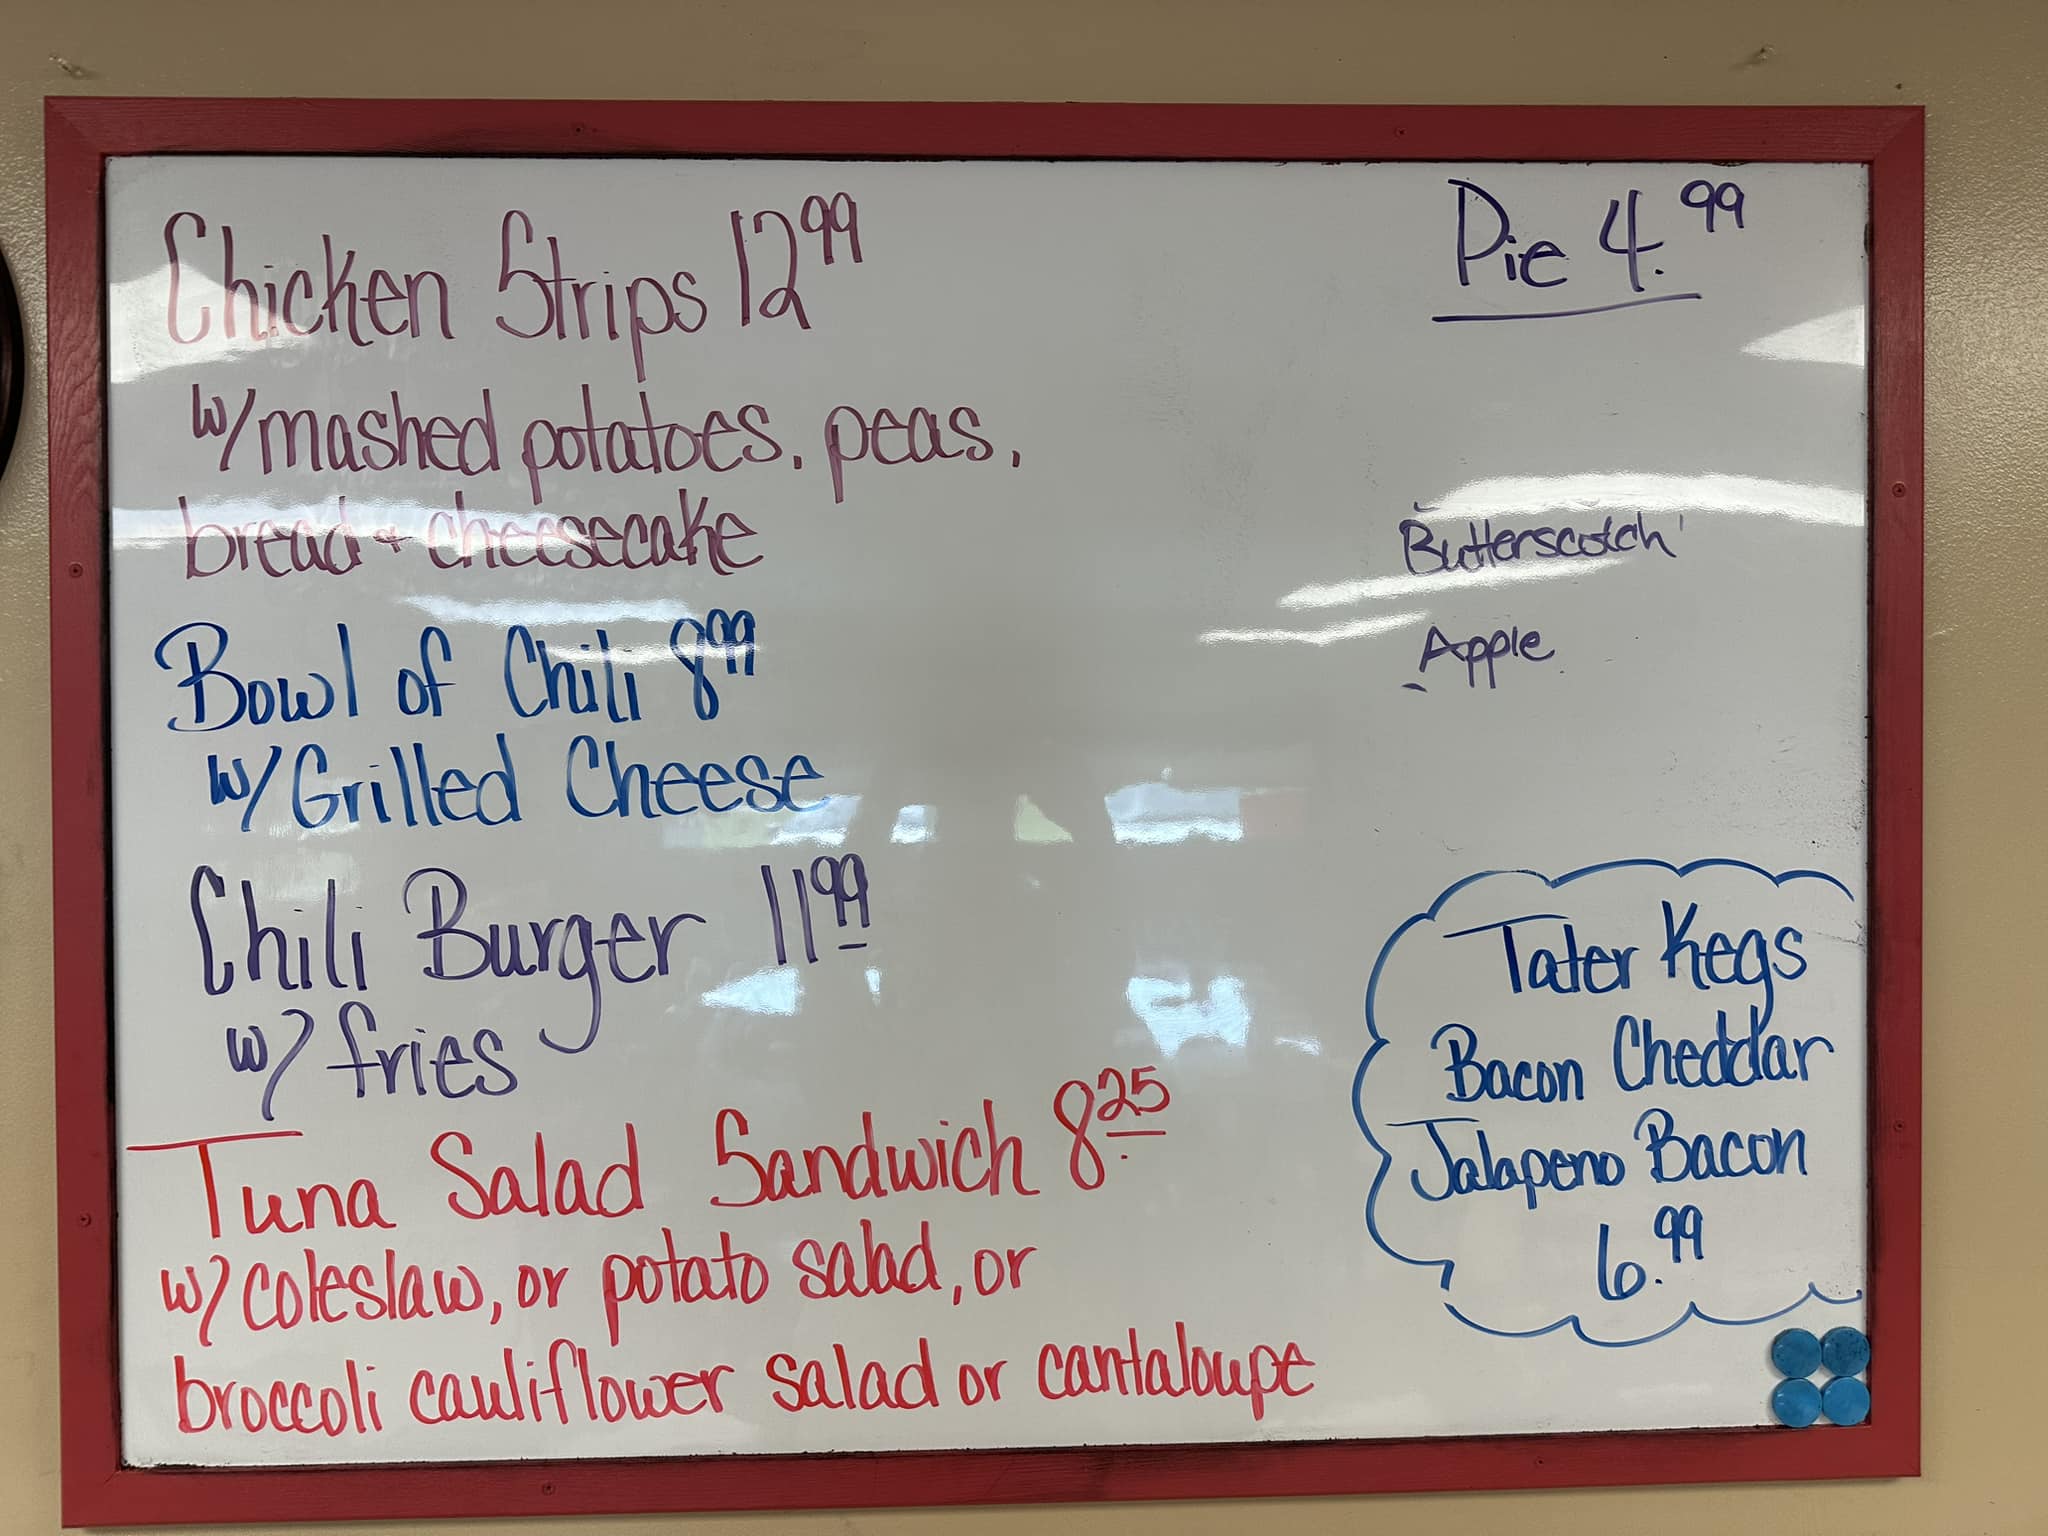 Chicken Strips 12.99
w/ mashed potatoes, peas,
bread + cheesecake
Bowl of Chili 8.99
w/ Grilled Cheese
Chili Burger 11.99
w/ fries
Tuna Salad Sandwich 8.25
w/ coleslaw, or potato salad, or
broccoli cauliflower salad or cantaloupe
Pie 4.99
Butterscotch
Apple
Tater Kegs
Bacon Cheddar
Jalapeno Bacon
6.99